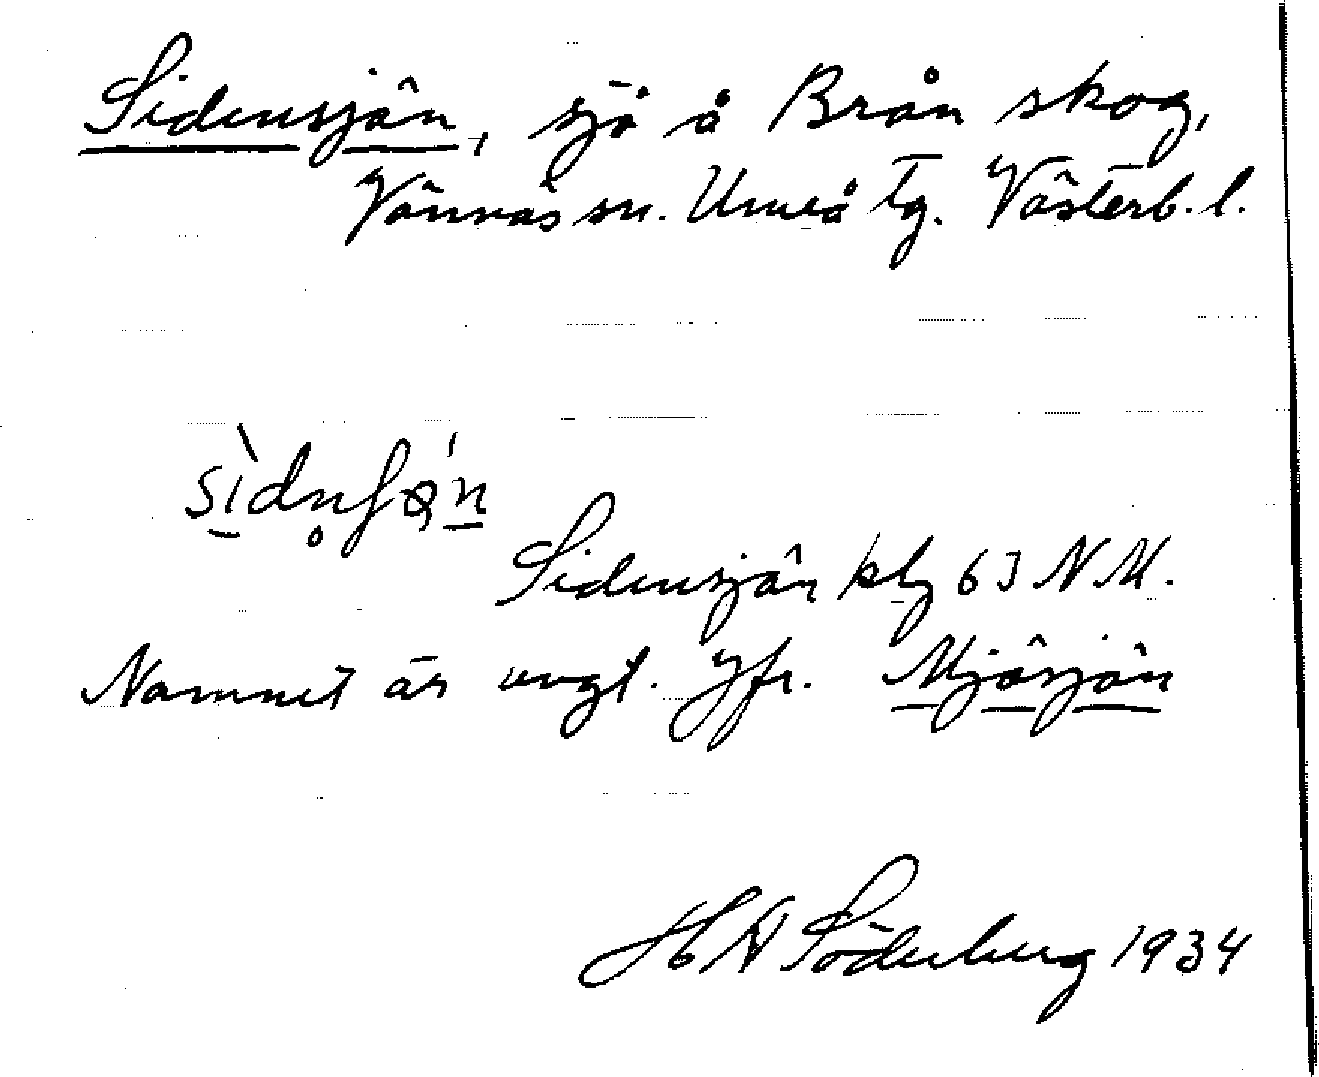 Sidensjön, sjö å Brån skog,
Vännäs sn. Umeå tg. Västerb. l.
Sidensjön kbl 63 N M.
Namnet är ungt. Jfr. Mjösjön
H A Söderberg 1934